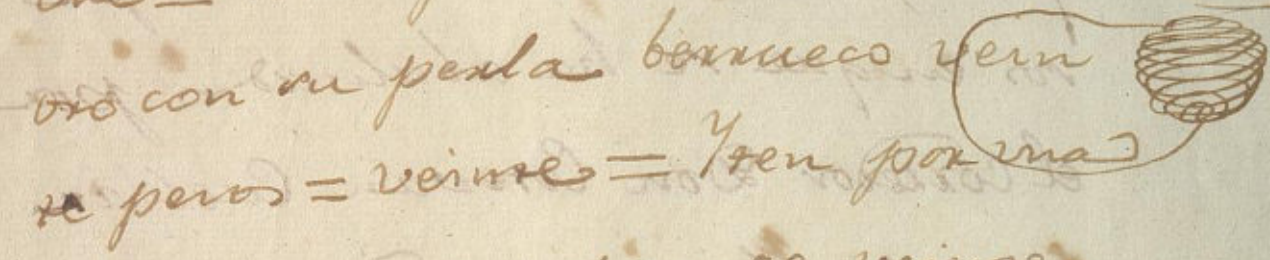 oro con su perla berrueco vein
te pesos = veinte = Yten por una